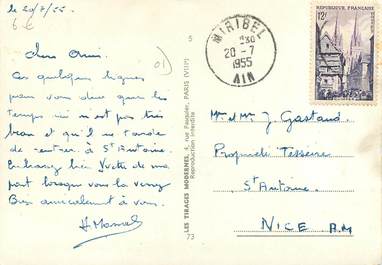 le 20/7/55.
6€
Chers Amis.
01
Ces quelques lignes
pour vous dire que le
temps ici n'est pas très
beau et qu'il me tarde
de rentrer à St Antoine
Embrassez bien Yvette de ma
part lorsque vous la verrez
Bien amicalement à vous.
5
LES TIRAGES MODERNES, 4, rue Pasquier, PARIS (VIIIe)
Reproduction interdite
73
MIRIBEL
20 - 7
1955
AIN
RÉPUBLIQUE FRANÇAISE
12F
Mr et Me J. Gastaud
Propriété Teisseire
St Antoine
NICE A.M